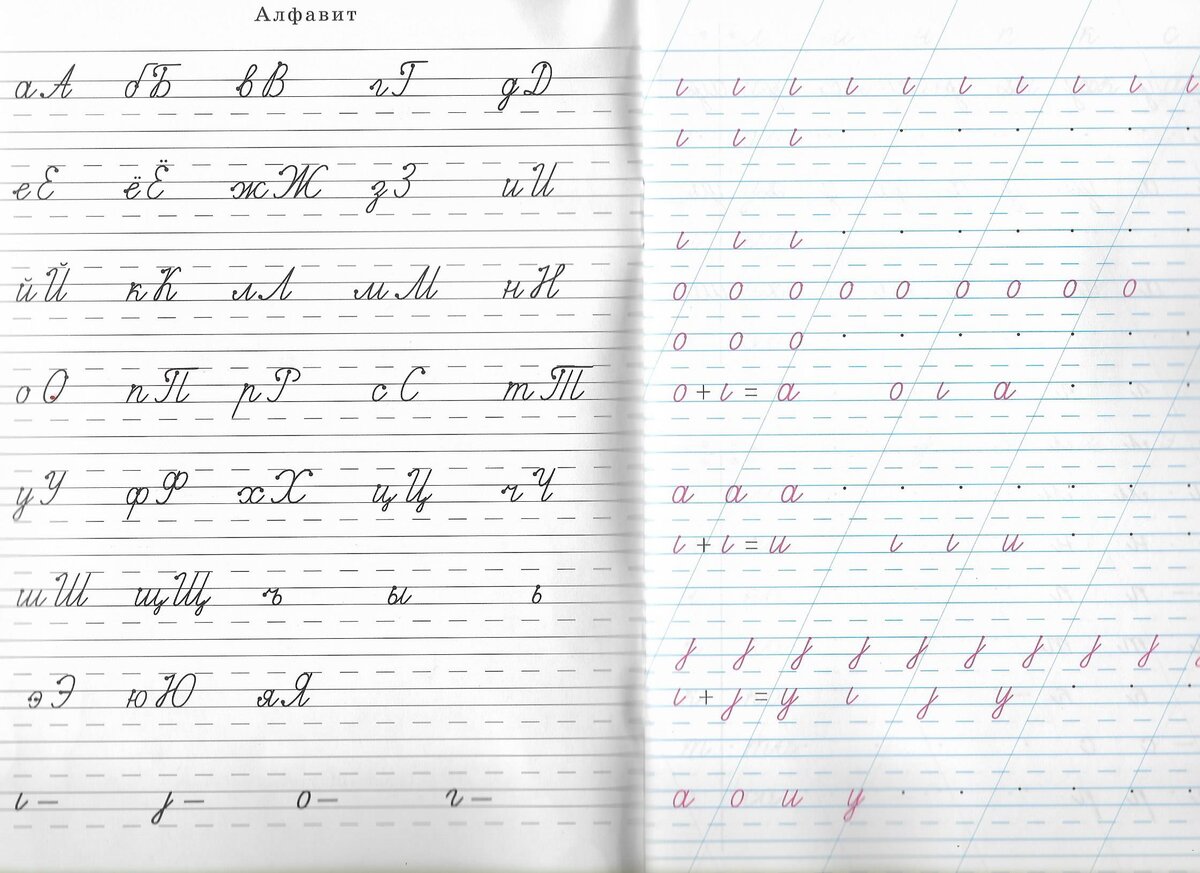 Алфавит
аА бБ вВ гГ дД
еЕ ёЁ жЖ зЗ иИ
йЙ кК лЛ мМ нН
оО пП рР сС тТ
уУ фФ хХ цЦ чЧ
шШ щЩ ъ ы ь
эЭ юЮ яЯ
о
о о о о о о о о о
о о о
о + = а о а
а а а
+ = и и
+ = у у
а о и у